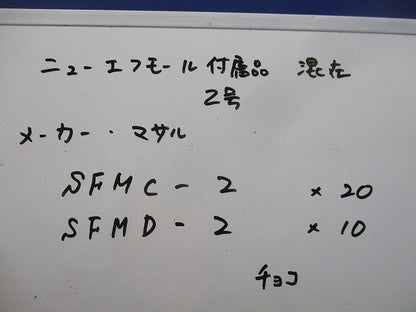 ニューエフモール付属品 混在
2号
メーカー・マサル
SFMC-2 × 20
SFMD-2 × 10
チョコ